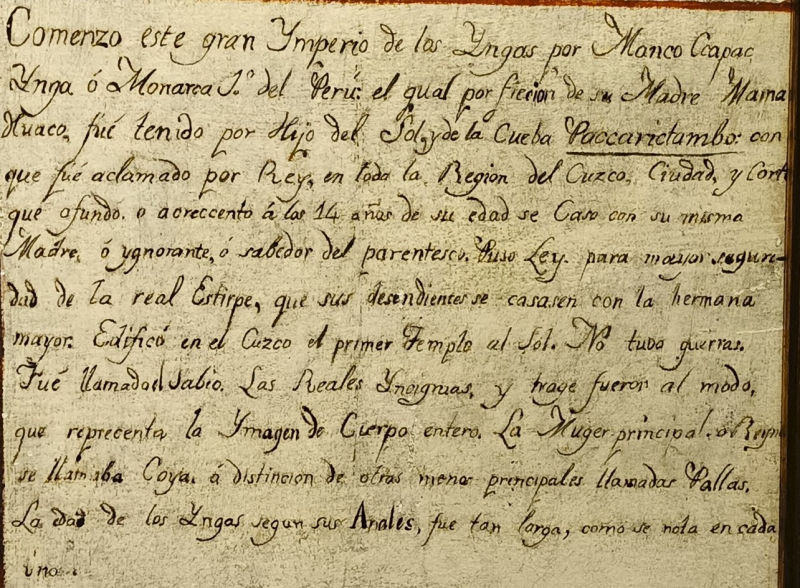 Comenzo este gran Ymperio de los Yngas por Manco Ccapac
Ynga ó Monarca 1.º del Perú: el qual por ficcion de su Madre Mama
Huaco, fué tenido por Hijo del Sol, y de la Cueba Paccarictambo: con
que fué aclamado por Rey, en toda la Region del Cuzco, Ciudad, y Corte
que afundó. o acreccento á los 14 años de su edad se Caso con su misma
Madre, ó ygnorante, ó sabedor del parentesco. Puso Ley. para mayor seguri-
dad de la real Estirpe, que sus desendientes se casasen con la hermana
mayor. Edificó en el Cuzco el primer Templo al Sol. No tubo guerras.
Fué llamado el Sabio. Las Reales Yncignias, y trage fueron al modo,
que reprecenta la Ymagen de Cuerpo entero. La Muger principal. o Reyna
se llamaba Coya. á distincion de otras menos principales llamadas Pallas.
La edad de los Yngas segun sus Anales, fue tan larga, como se nota en cada
uno.